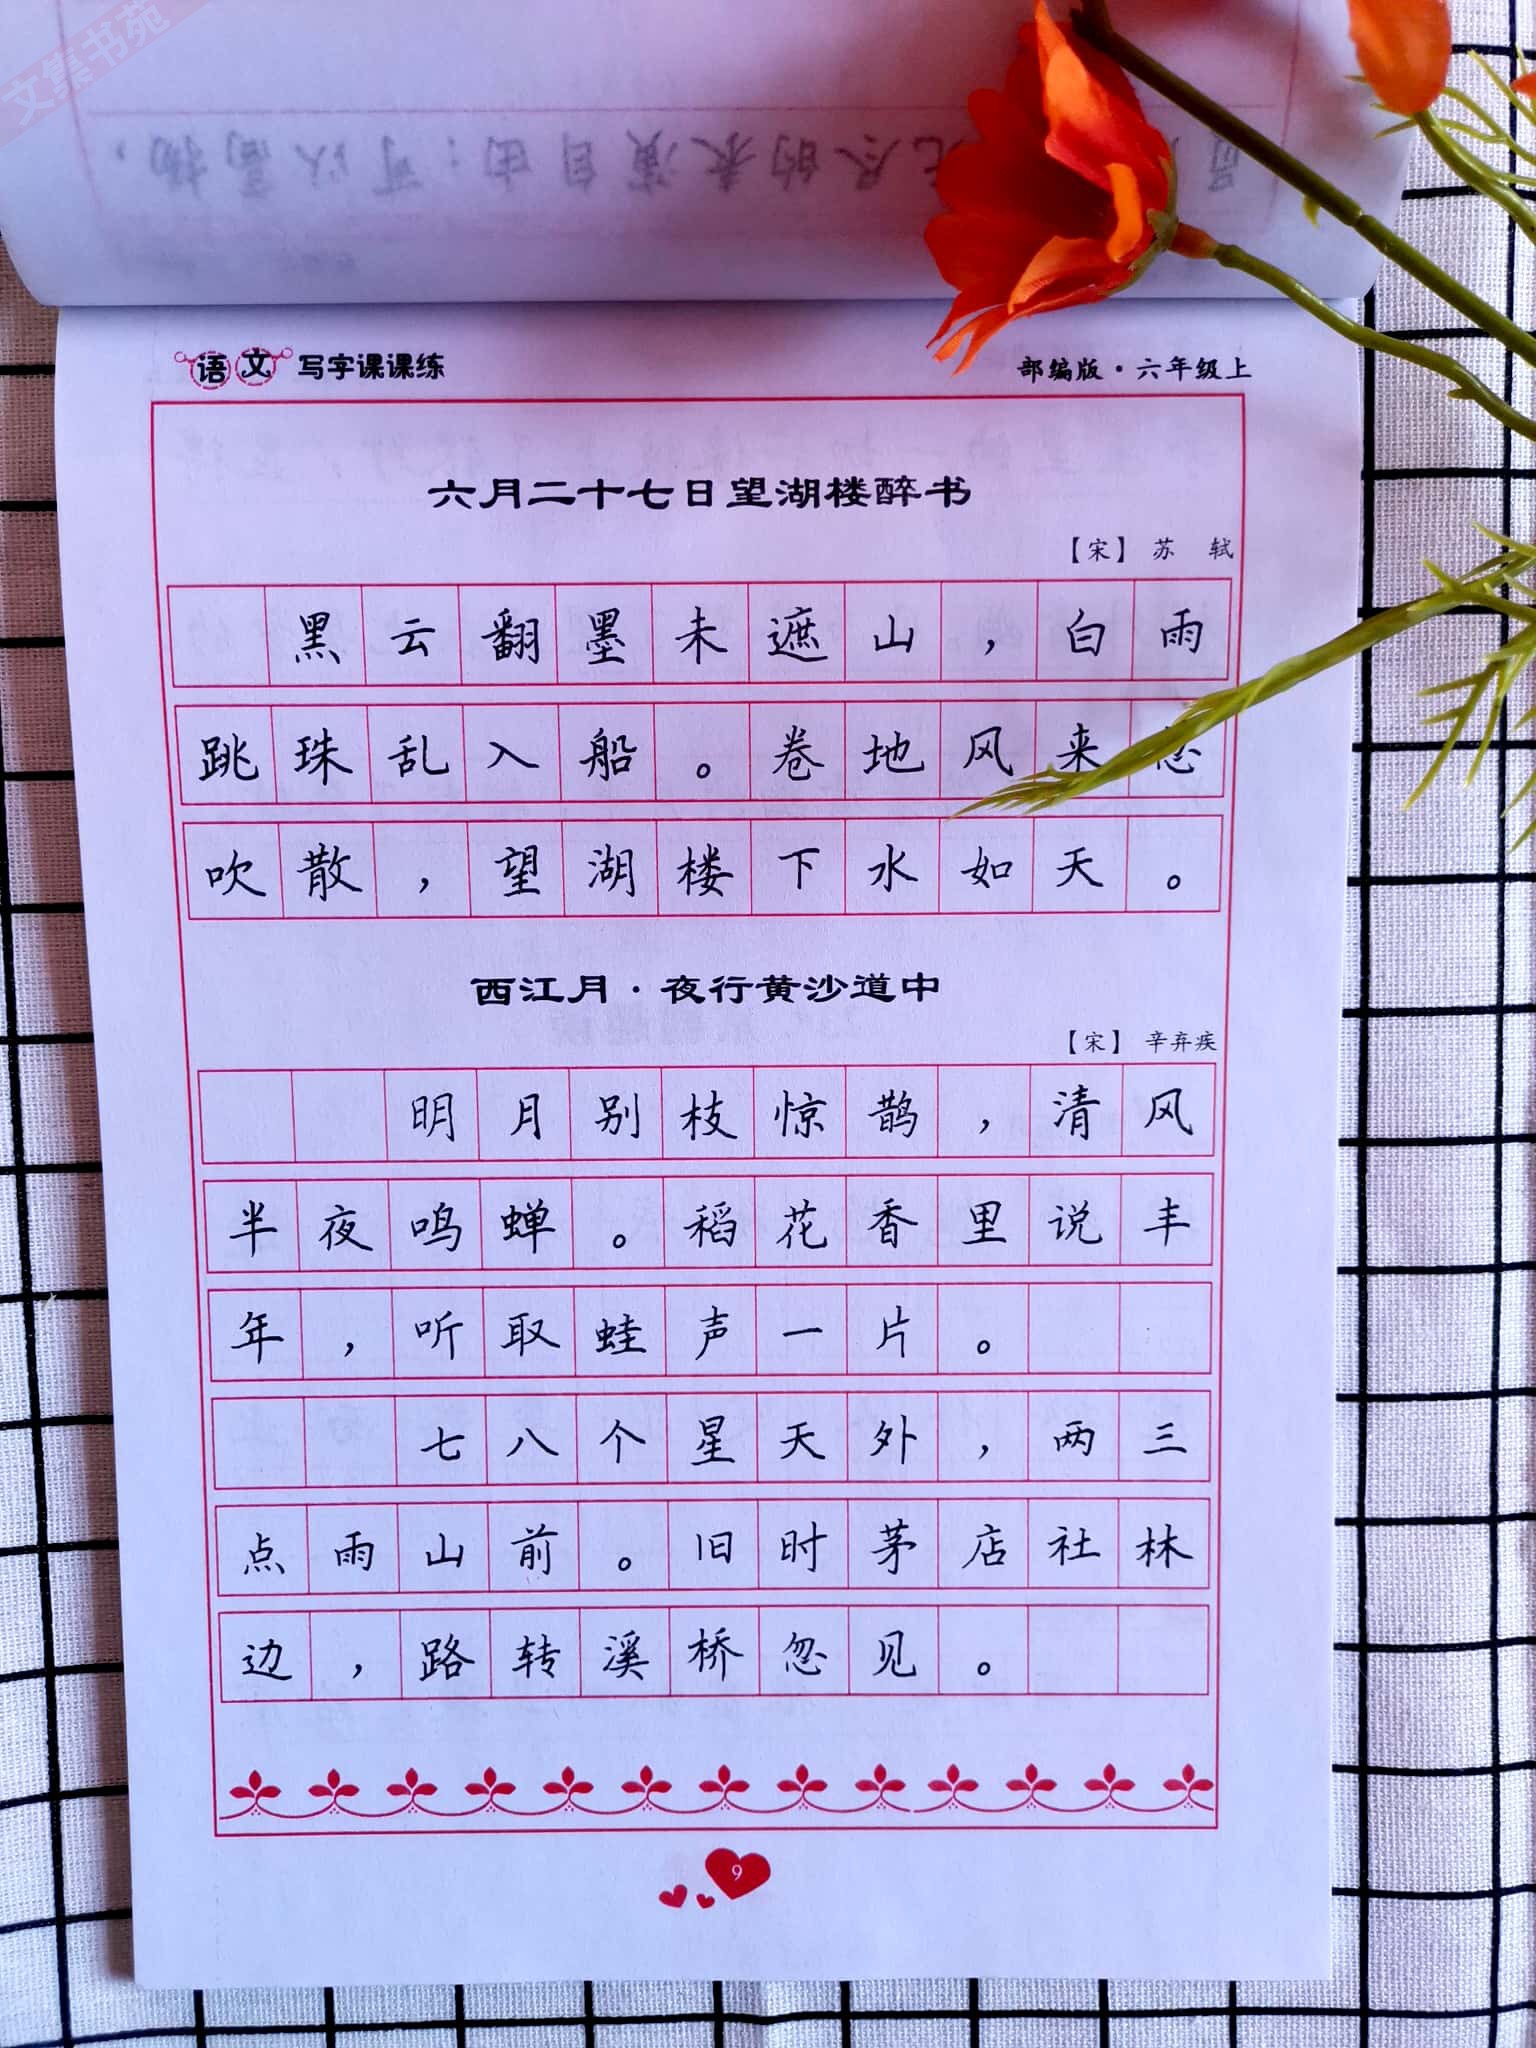 文集书苑
语文 写字课课练
部编版·六年级上
六月二十七日望湖楼醉书
【宋】 苏 轼
黑云翻墨未遮山，白雨
跳珠乱入船。卷地风来忽
吹散，望湖楼下水如天。
西江月·夜行黄沙道中
【宋】 辛弃疾
明月别枝惊鹊，清风
半夜鸣蝉。稻花香里说丰
年，听取蛙声一片。
七八个星天外，两三
点雨山前。旧时茅店社林
边，路转溪桥忽见。
9